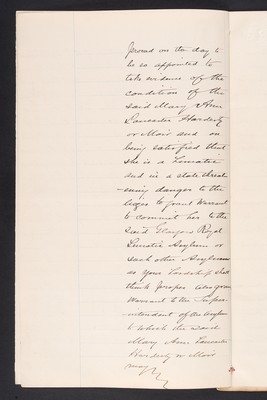 proved on the day to
be so appointed to
take evidence of the
condition of the
said Mary Ann
Lancaster Hardesty
or Moir and on
being satisfied that
she is a Lunatic
and in a state threat
-ening danger to the
lieges to grant Warrant
to commit her to the
said Glasgow Royal
Lunatic Asylum or
such other Asylum
as Your Lordship shall
think proper also grant
Warrant to the Super
-intendent of the Asylum
to which the said
Mary Ann Lancaster
Hardesty or Moir
may